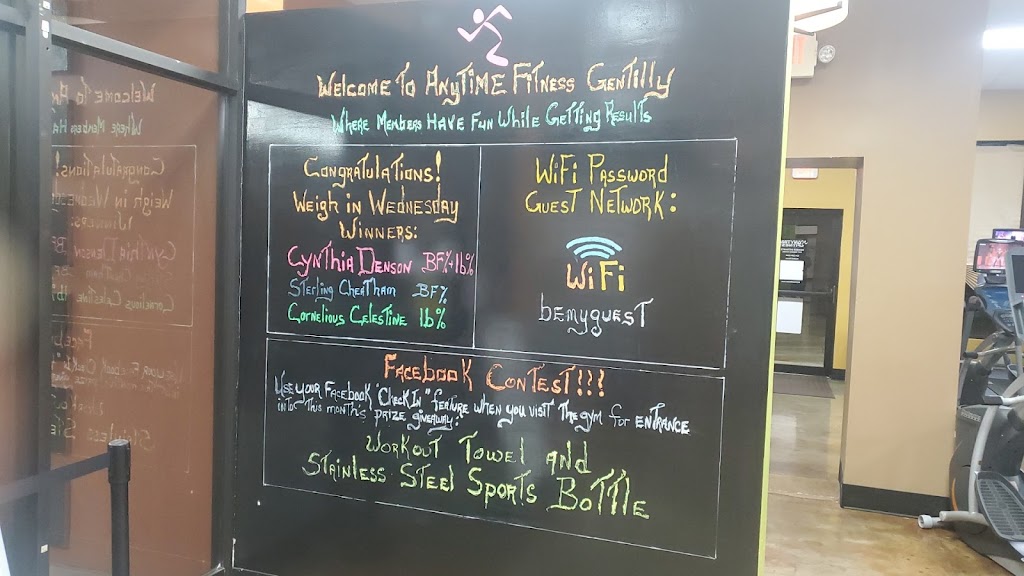 Welcome To Anytime Fitness Gentilly
Where Members Have Fun While Getting Results
Congratulations!
Weigh in Wednesday
Winners:
Cynthia Denson BF%-lb%
Sterling Cheatham BF%
Cornelious Celestine lb%
WiFi Password
Guest Network:
WiFi
bemyguest
Facebook Contest!!!
Use your Facebook "Check In" feature when you visit the gym for entrance
into this month's prize giveaway!
Workout Towel and
Stainless Steel Sports Bottle